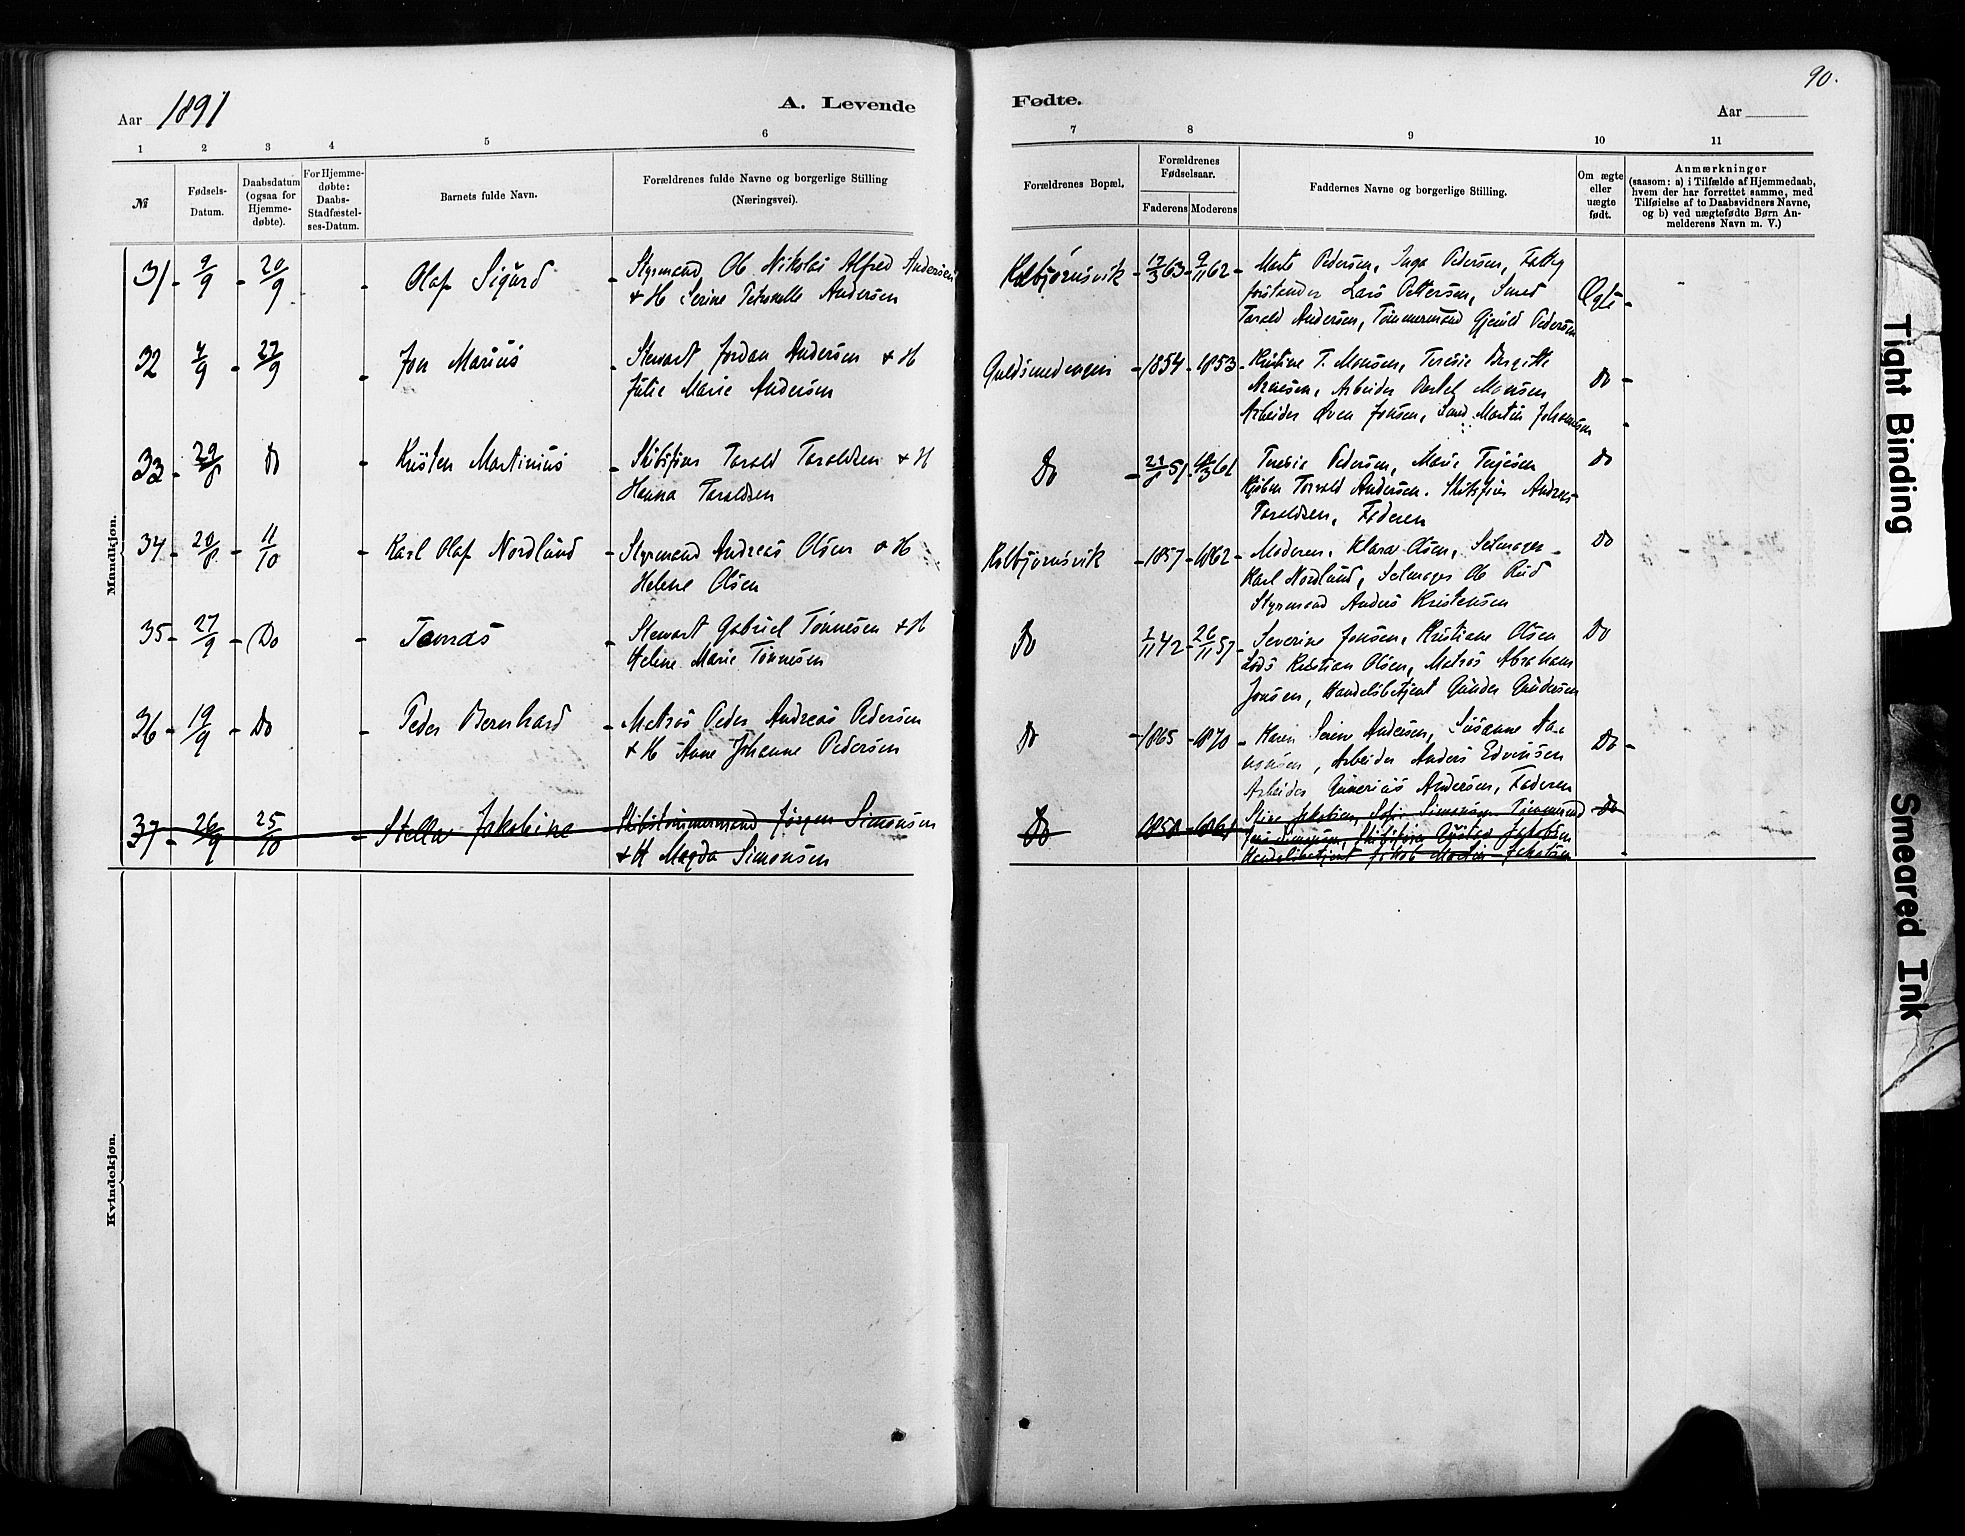 90.
Aar 1891
A. Levende
Fødte.
Aar
1 2 3 4 5 6
7 8 9 10 11
№
Fødsels-
Datum.
Daabsdatum
(ogsaa for
Hjemme-
døbte).
For Hjemme-
døbte:
Daabs-
Stadfæstel-
ses-Datum.
Barnets fulde Navn.
Forældrenes fulde Navne og borgerlige Stilling
(Næringsvei).
Forældrenes Bopæl.
Forældrenes
Fødselsaar.
Faderens Moderens
Faddernes Navne og borgerlige Stilling.
Om ægte
eller
uægte
født.
Anmærkninger
(saasom: a) i Tilfælde af Hjemmedaab,
hvem der har forrettet samme, med
Tilføielse af to Daabsvidners Navne,
og b) ved uægtefødte Børn An-
melderens Navn m. V.)
Mandkjøn.
31 - 9/9 - 20/9 - Olaf Sigurd - Styrmand Ole Nikolai Alfred Andersen
& H Serine Petronelle Andersen
Kolbjørnsvik - 17/3 63 - 9/11 62 - Marte Pedersen, Inga Pedersen, Fattig
forstander Lars Pettersen, Smed
Tarald Andersen, Tømmermand Gjeruld Pedersen
Ægte
32 4/9 - 27/9 - Jon Marius - Stewart Jordan Andersen & H
Julie Marie Andersen
Guldsmedvogen - 1854 - 1853 - Kristine T. Monsen, Teresie Bergitte
Arnesen, Arbeider Bertel Monsen
Arbeider Even Jonsen, Smed Martin Johannesen
Do
33 - 29/8 Do - Kristen Martinius - Skibsfører Tarald Taraldsen & H
Hanna Taraldsen
Do - 21/8 51 - 12/3 61 Teresie Pedersen, Marie Terjesen
Kjøbm Torvald Andersen. Skibsfører Andreas
Taraldsen, Faderen
Do
34 - 20/8 - 11/10 - Karl Olaf Nordlund - Styrmand Andreas Olsen & H
Helene Olsen
Kolbjørnsvik - 1857 - 1862 - Moderen, Klara Olsen, Seilmager
Karl Nordlund, Seilmager Ole Rud
Styrmand Anders Kristensen
Do
35 - 27/9 - Do - Tomas - Stewart Gabriel Tønnesen & H
Helene Marie Tønnesen
Do 1/11 42 - 26/11 57 - Severine Jensen, Kristiane Olsen
Lods Kristian Olsen, Matros Abraham
Jensen, Handelsbetjent Gunder Gundersen
Do
36 - 19/9 - Do - Peder Bernhard - Matros Peder Andreas Pedersen
& H Anne Johanne Pedersen
Do - 1865 - 1870 - Karen Serine Andersen, Susanne Aa-
nonsen, Arbeider Anders Edvinsen
Arbeider Gunerius Andersen, Faderen
Do
37 - 26/9 25/10 - Stella Jakobine - Skibstømmermand Jørgen Simonsen
& H Magda Simonsen
Do 1858 - 1861 Stine Jakobsen, Sofie Simonsen, Tømmermand
Jens Simonsen, Skibsfører Gustav Jakobsen
Handelsbetjent Jakob Martin Jakobsen
Do
Kvindekjøn.
Tight Binding
Smeared Ink